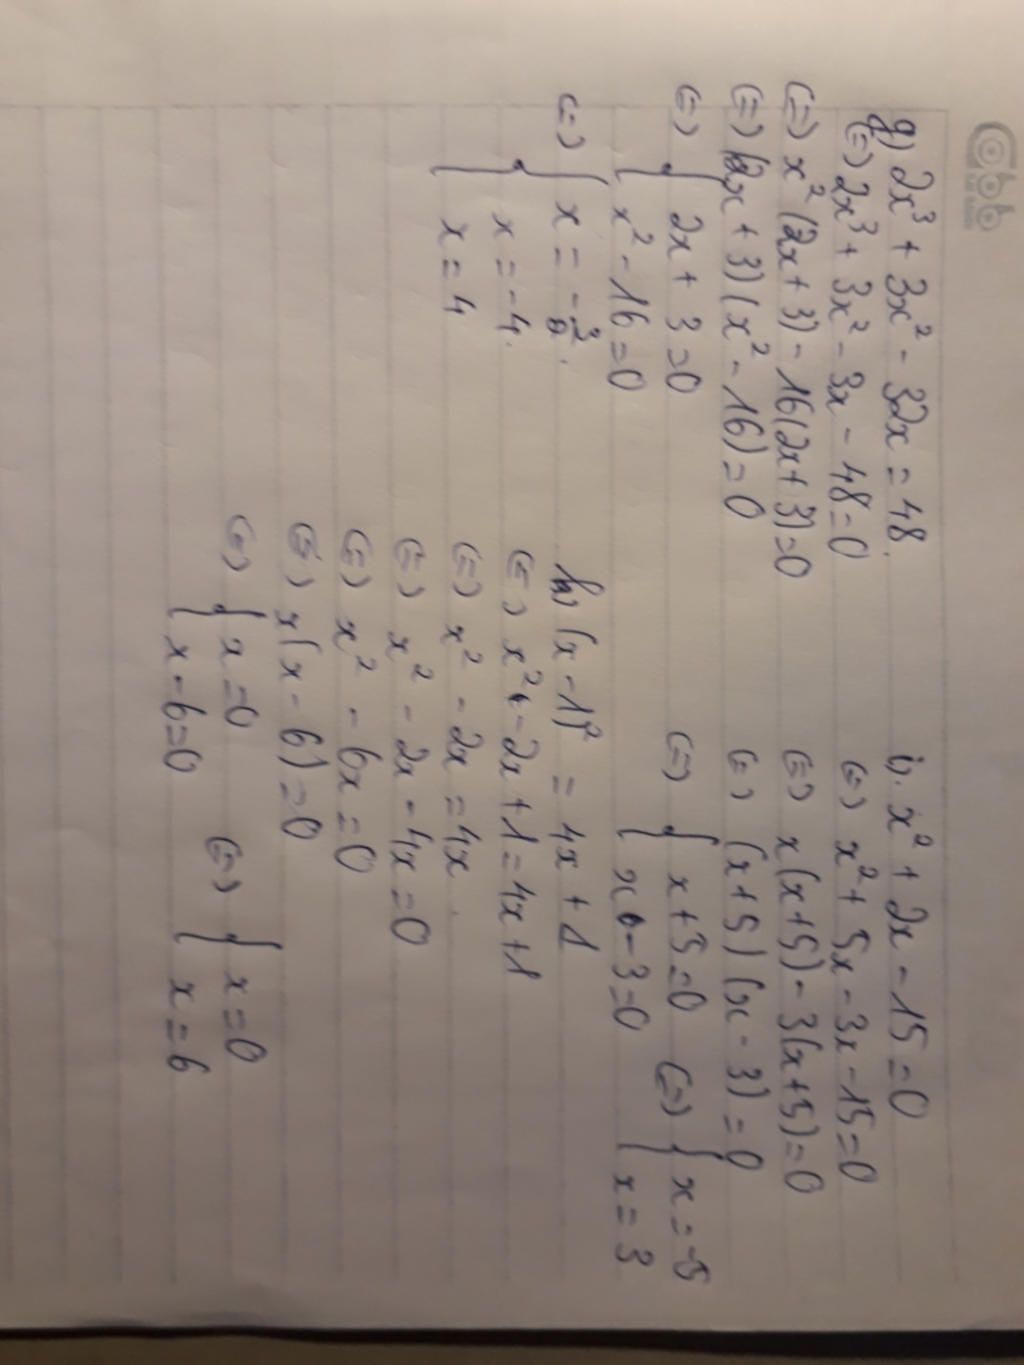 g) 2x³ + 3x² - 32x = 48.
(=) 2x³ + 3x² - 3x - 48 = 0
(=) x²(2x + 3) - 16(2x + 3) = 0
(=) (2x + 3)(x² - 16) = 0
(=) { 2x + 3 = 0
x² - 16 = 0
(=) { x = -3/2.
x = -4.
x = 4
h) (x - 1)² = 4x + 1
(=) x² - 2x + 1 = 4x + 1
(=) x² - 2x = 4x.
(=) x² - 2x - 4x = 0
(=) x² - 6x = 0
(=) x(x - 6) = 0
(=) { x = 0 (=) { x = 0
x - 6 = 0 x = 6
i). x² + 2x - 15 = 0
(=) x² + 5x - 3x - 15 = 0
(=) x(x + 5) - 3(x + 5) = 0
(=) (x + 5)(x - 3) = 0
(=) { x + 5 = 0 (=) { x = -5
x - 3 = 0 x = 3